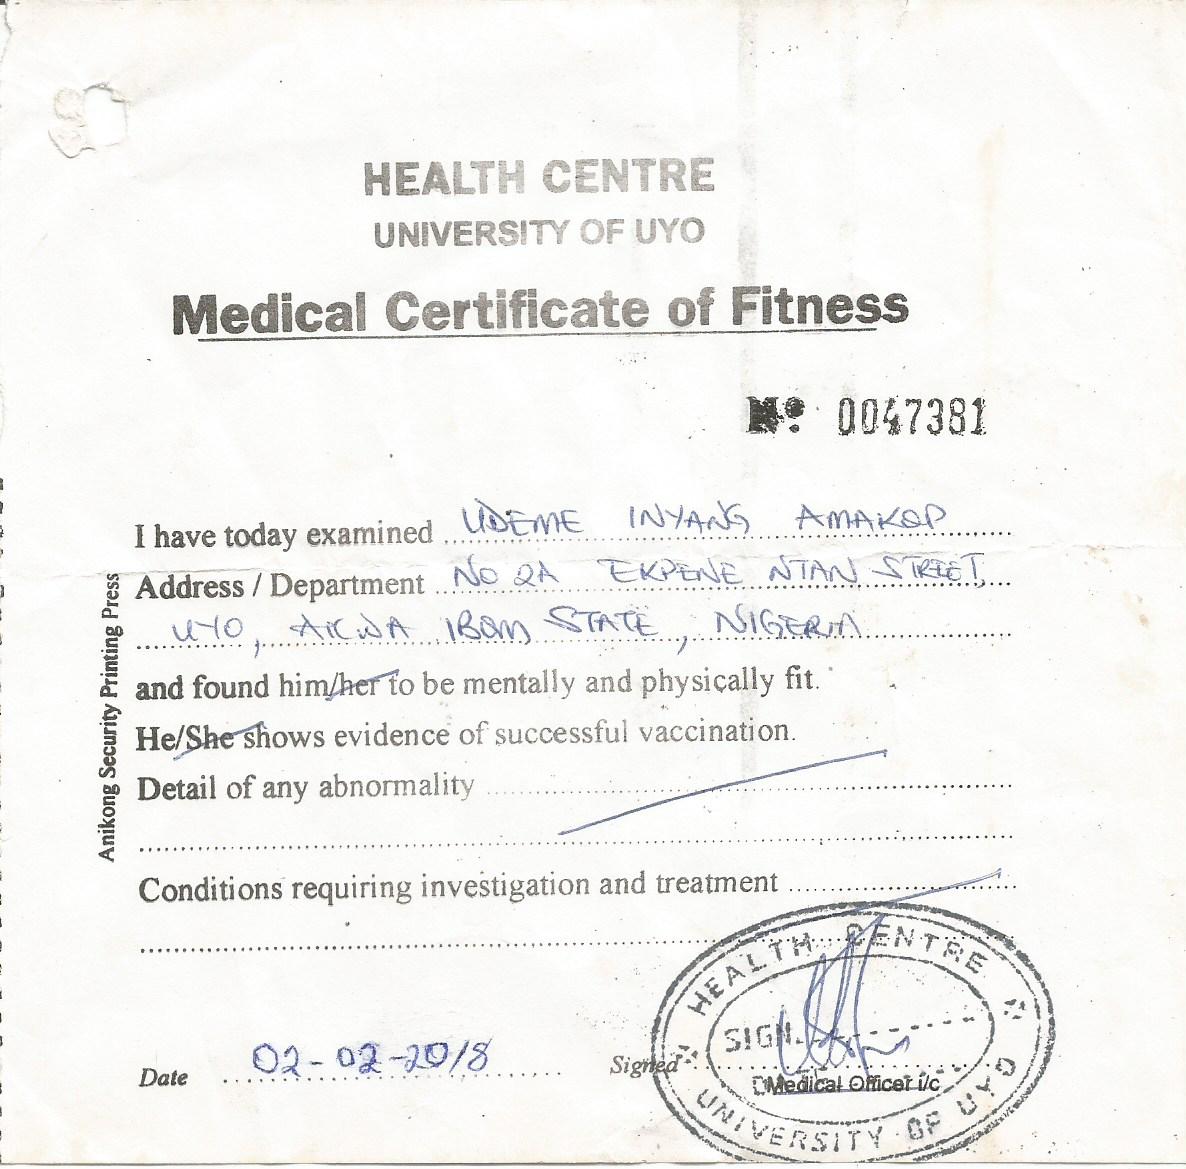 HEALTH CENTRE
UNIVERSITY OF UYO
Medical Certificate of Fitness
Nº 0047381
I have today examined UDEME INYANG AMAKOP
Address / Department NO 2A EKPENE NTAN STREET,
UYO, AKWA IBOM STATE, NIGERIA
and found him/her to be mentally and physically fit.
He/She shows evidence of successful vaccination.
Detail of any abnormality
Conditions requiring investigation and treatment
Date 02-02-2018 Signed
Medical Officer i/c
HEALTH CENTRE
SIGN.
UNIVERSITY OF UYO
Anikong Security Printing Press